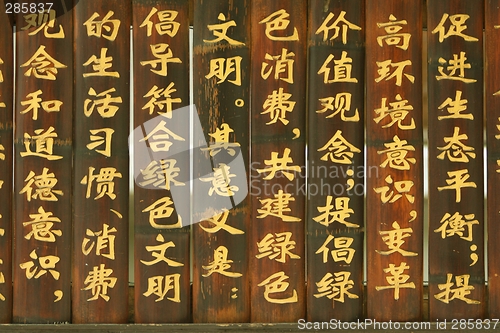 促进生态平衡；提
高环境意识，变革
价值观念；提倡绿
色消费，共建绿色
文明。其意义是：
倡导符合绿色文明
的生活习惯、消费
观念和道德意识，
285837
285837
285837
285837